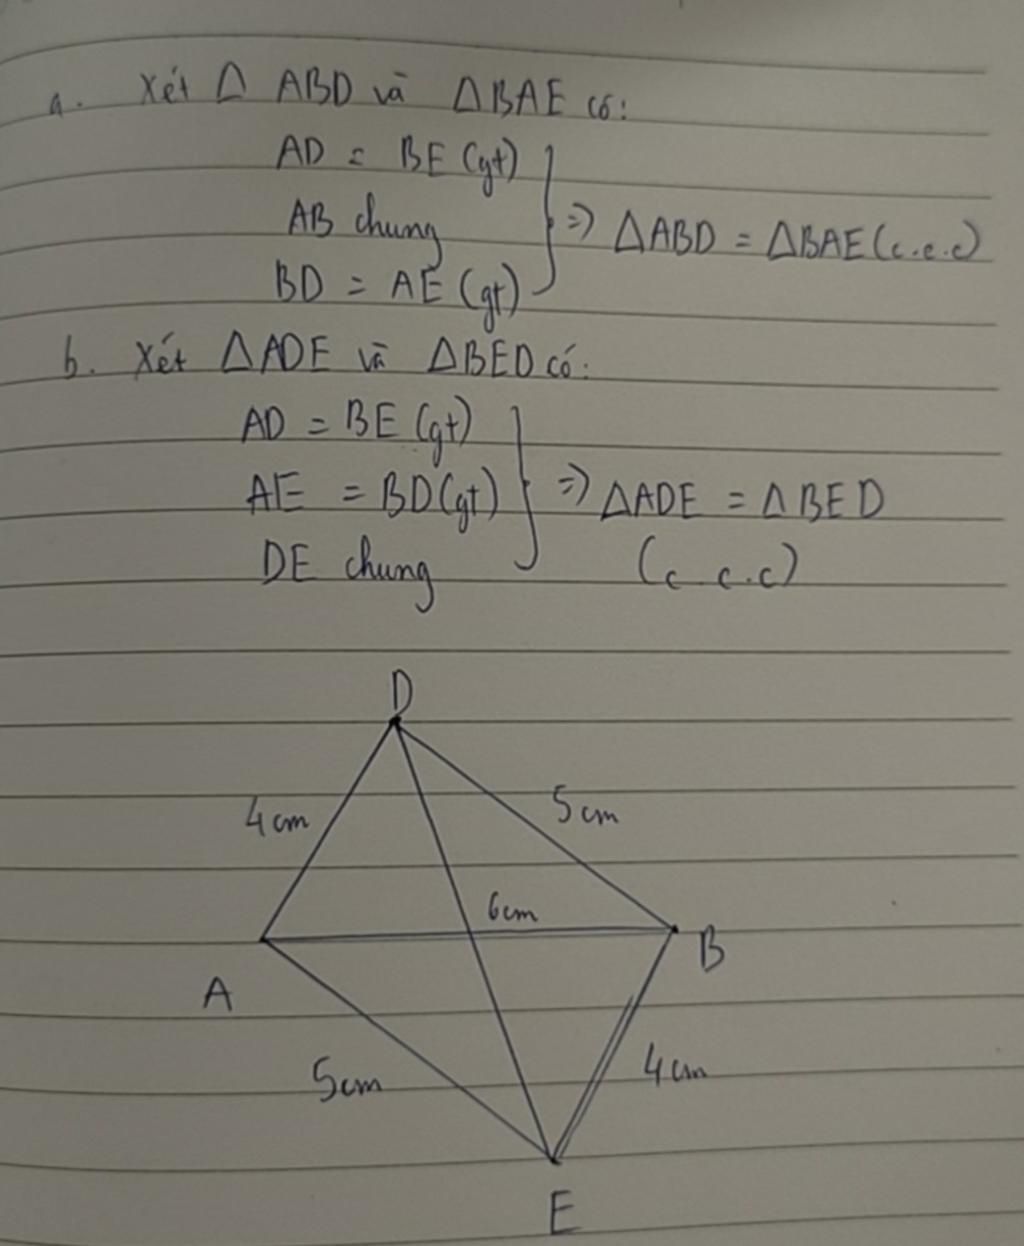 a. Xét Δ ABD và ΔBAE có:
AD = BE (gt)
AB chung
BD = AE (gt)
} => ΔABD = ΔBAE (c.c.c)
b. Xét ΔADE và ΔBED có:
AD = BE (gt)
AE = BD (gt)
DE chung
} => ΔADE = ΔBED
(c.c.c)
D
4cm
5cm
6cm
A
B
5cm
4cm
E